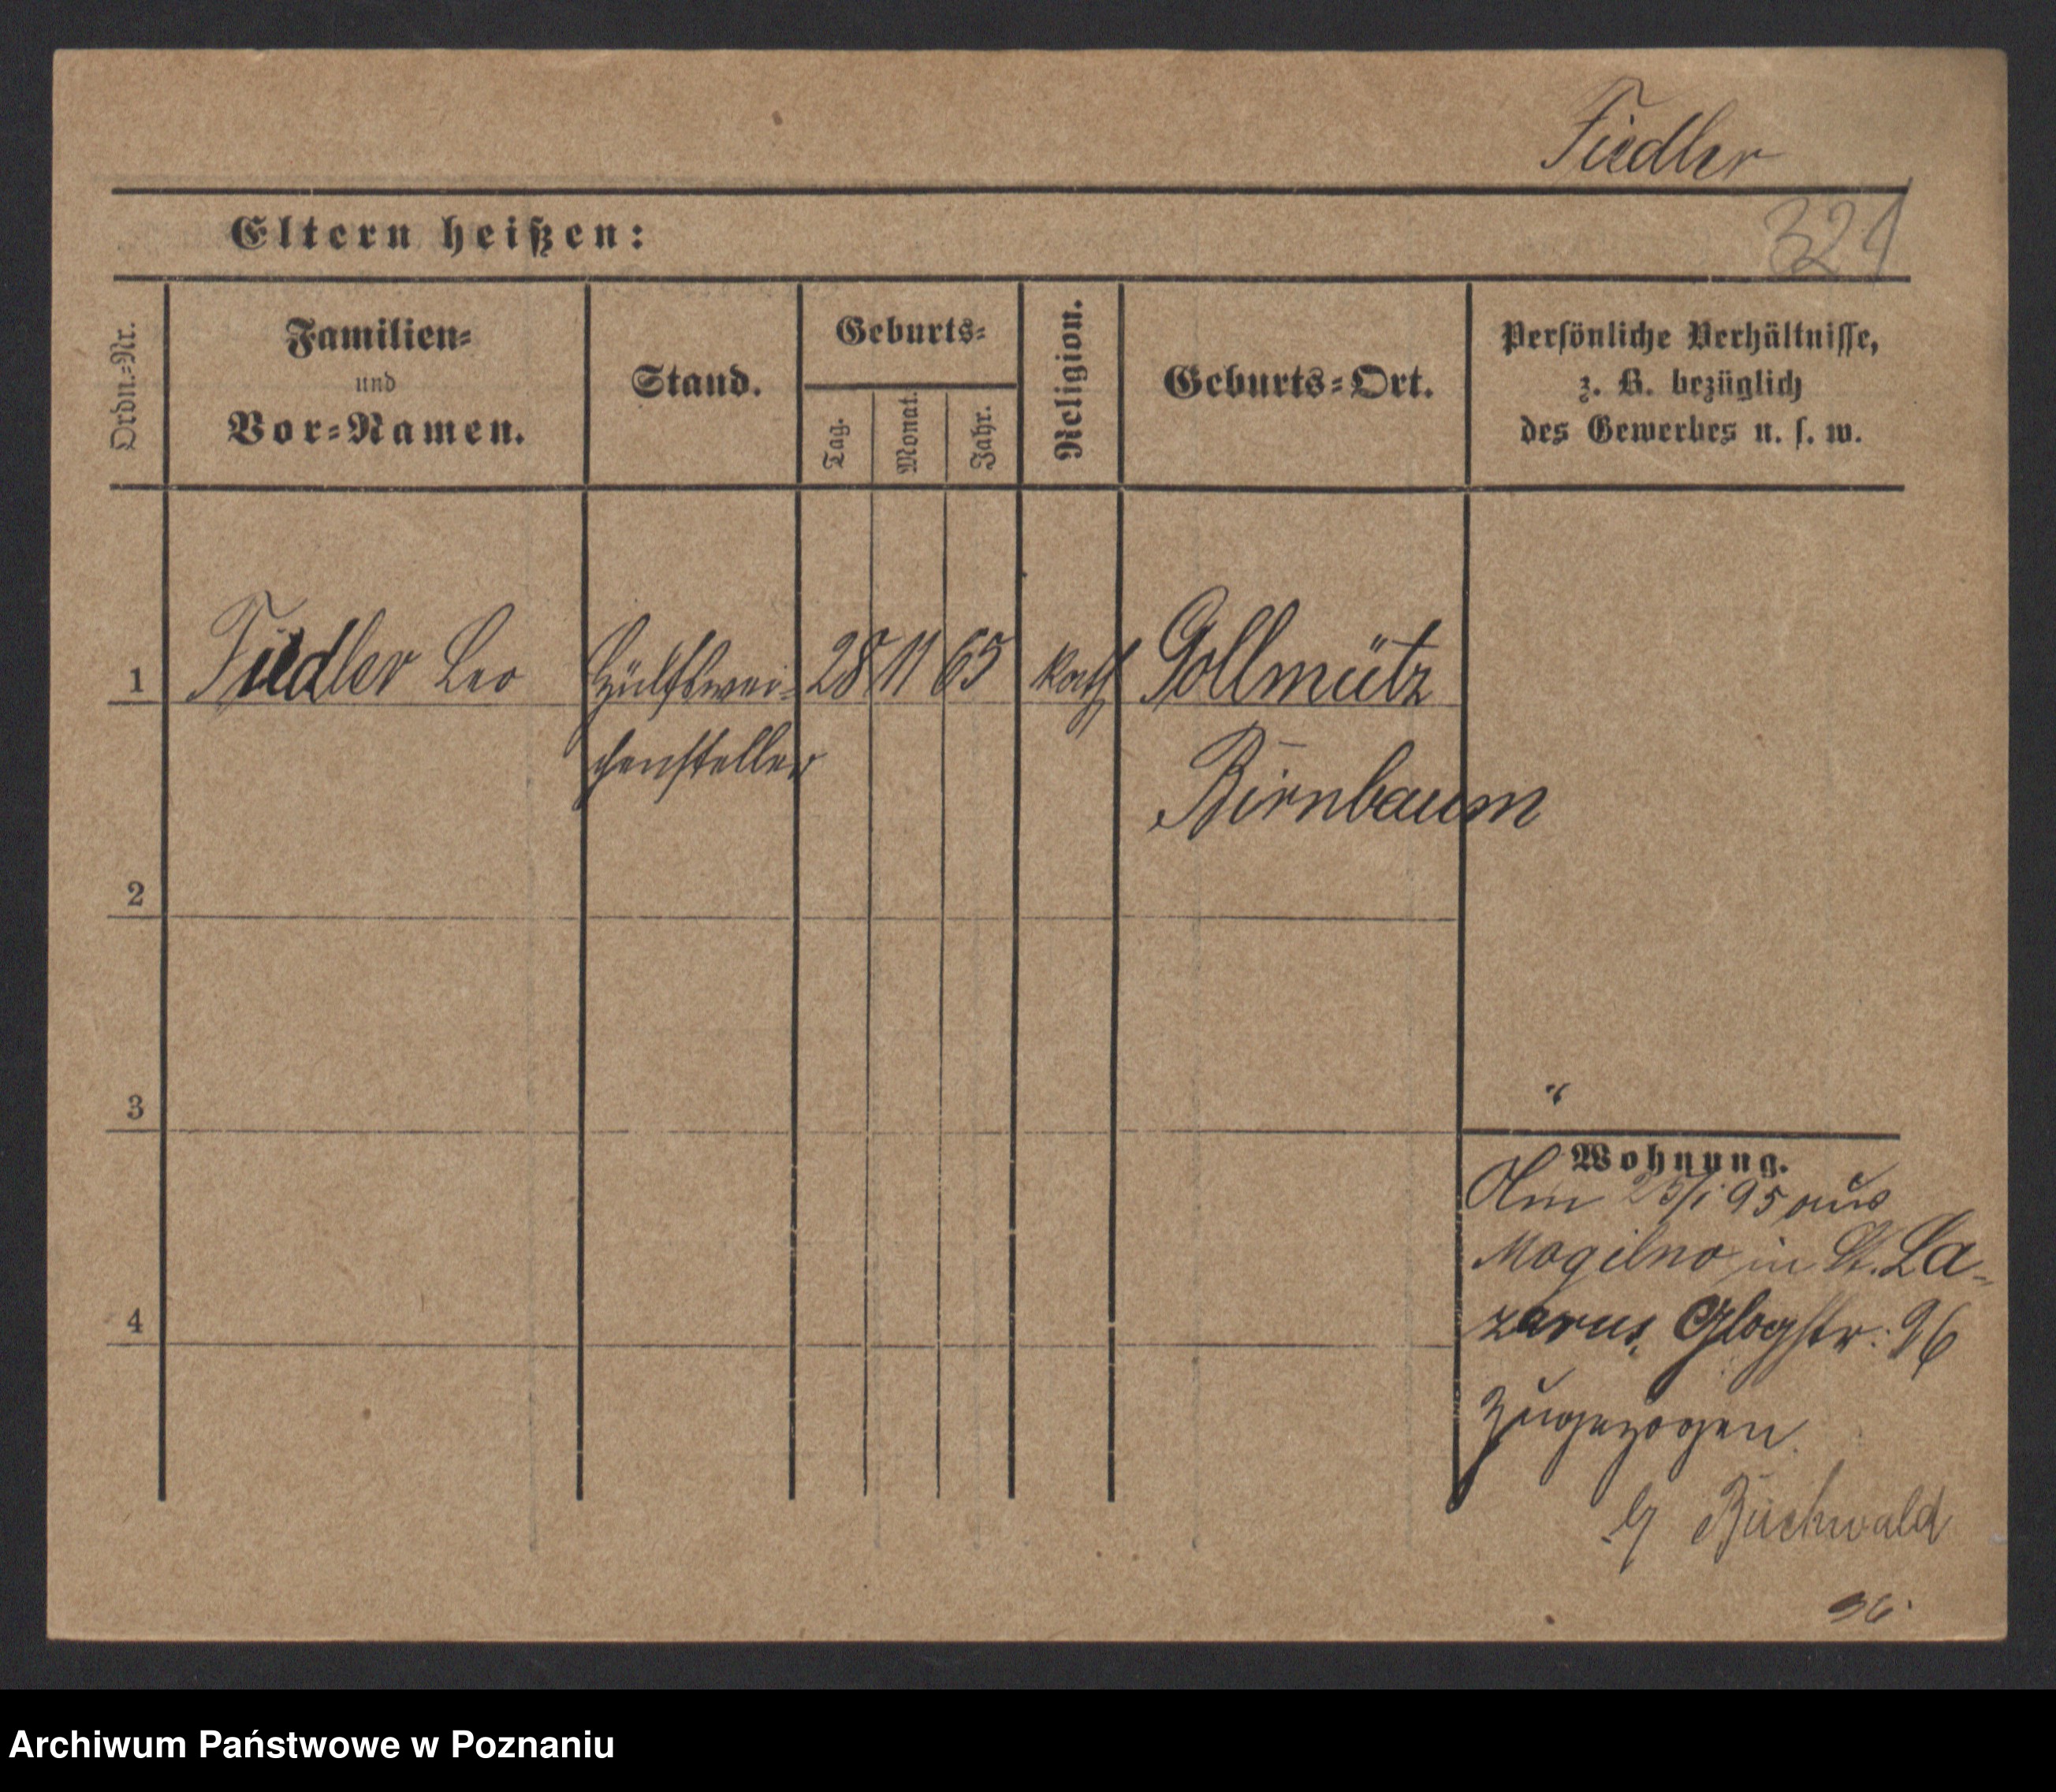 Fiedler
321
Eltern heißen:
Ordn.-Nr.
Familien-
und
Vor-Namen.
Stand.
Geburts-
Tag.
Monat.
Jahr.
Religion.
Geburts-Ort.
Persönliche Verhältnisse,
z. B. bezüglich
des Gewerbes u. s. w.
1 Fiedler Leo Hülfswei- 28 11 65 kath Gollmütz
chensteller
Birnbaum
2
3
4
Wohnung.
Am 25/1 95 aus
Mogilno in St. La-
zarus, Glogstr. 96
zugezogen.
b/ Buchwald
Archiwum Państwowe w Poznaniu